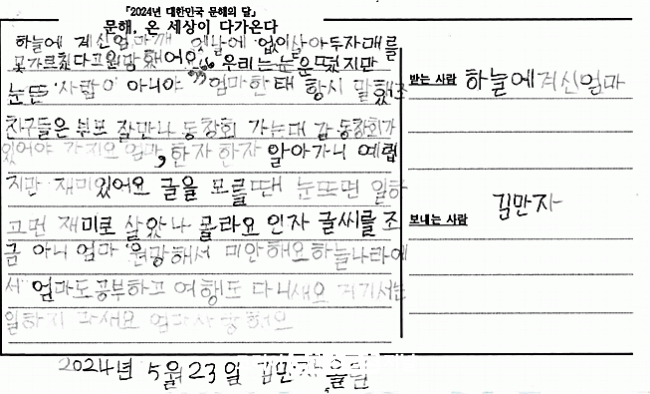 「2024년 대한민국 문해의 달」
문해, 온 세상이 다가온다
하늘에 계신엄마께 옛날에 없이살아두자매를
못가르쳤다고원망했어요 우리는눈은떴지만
눈뜬 사람이 아니야 엄마한태 항시 말했조
친구들은 쉽 잘만나 동창회 가는대 감 동창회가
있어야 가지요 엄마, 한자 한자 알아가니 예렵
지만 재미있어요 글을 모를때 눈뜨면 일하
고먼 재미로 살았나 몰라요 인자 글씨를 조
금 아니 엄마 원망해서 미안해요하늘나라에
서 엄마도공부하고 여행도 다니새요 거기서는
일하지 마새요 엄마사랑해요
받는 사람 하늘에계신엄마
보내는 사람 김만자
2024년 5월23일 김만자 올림